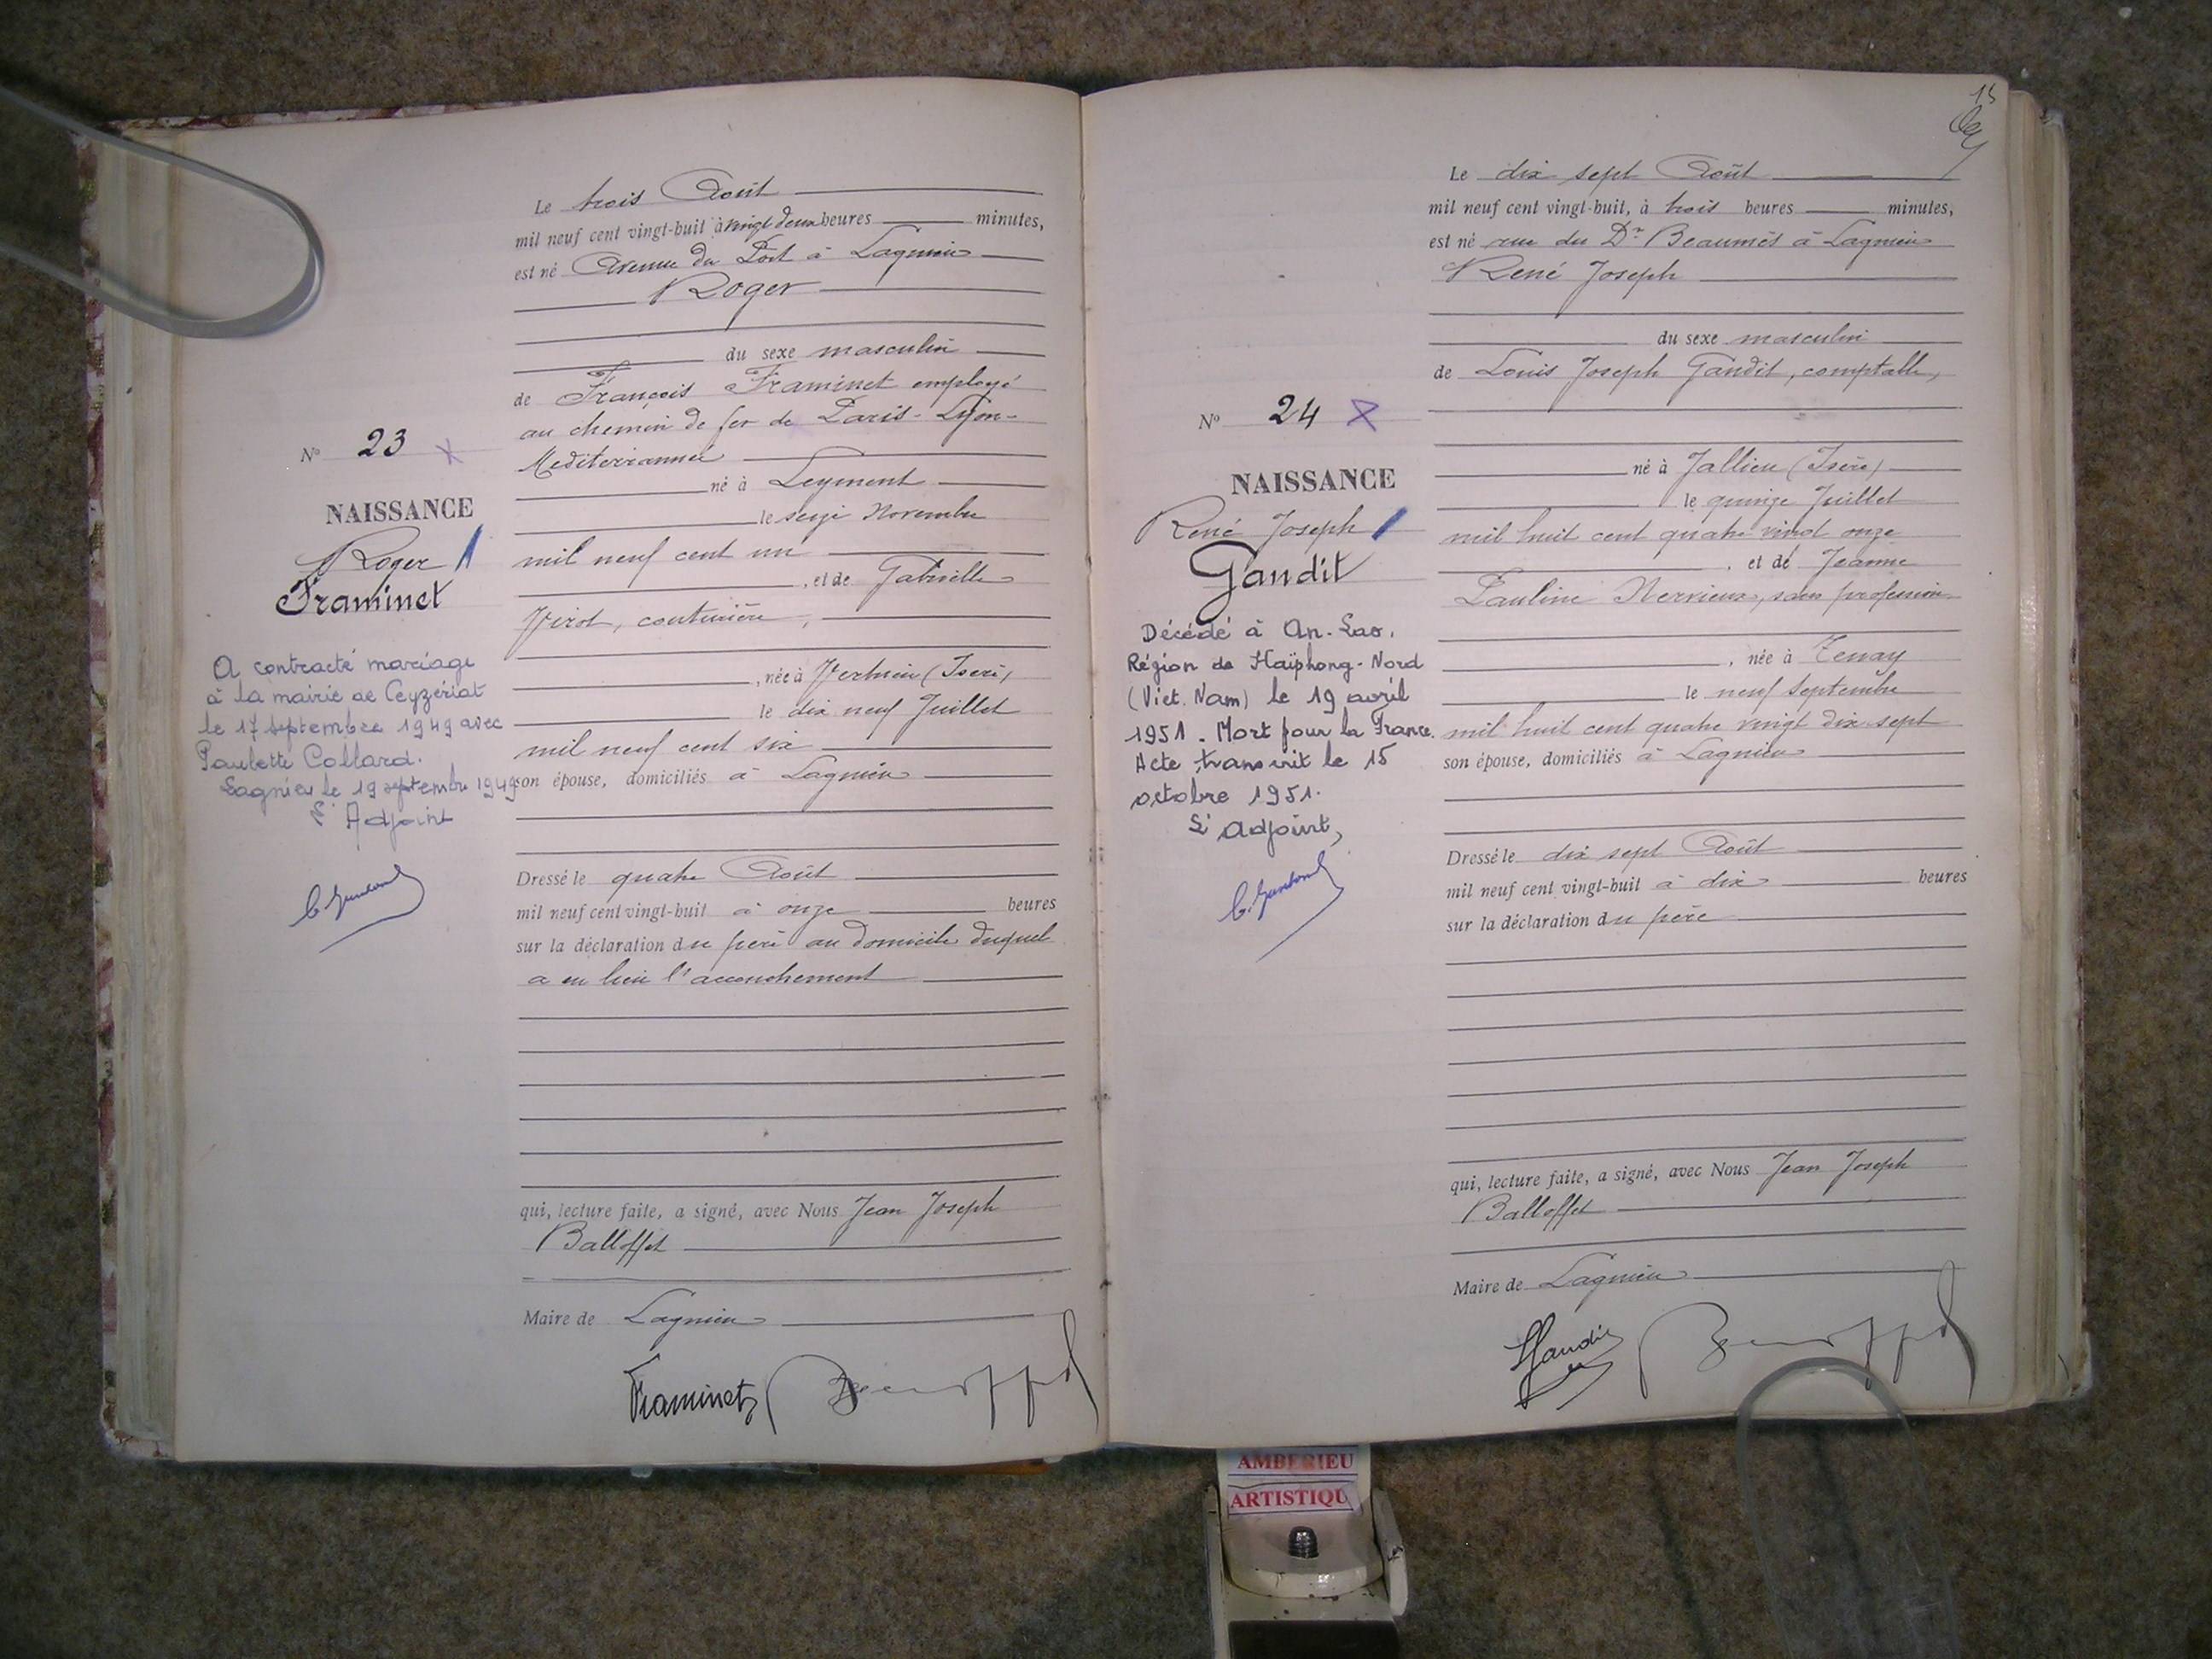 Le trois Août
mil neuf cent vingt-huit à vingt deux heures minutes,
est né Avenue du Port à Lagnieu
Roger
du sexe masculin
de François Framinet employé
au chemin de fer de Paris-Lyon-
Mediterrannée
né à Leyment
le seize Novembre
mil neuf cent un
, et de Gabrielle
Virot, couturière,
, née à Vertrieu (Isère)
le dix neuf Juillet
mil neuf cent six
son épouse, domiciliés à Lagnieu
Dressé le quatre Août
mil neuf cent vingt-huit à onze heures
sur la déclaration du père au domicile duquel
a eu lieu l'accouchement
qui, lecture faite, a signé, avec Nous Jean Joseph
Balloffet
Maire de Lagnieu
Framinet
No 23
NAISSANCE
Roger
Framinet
A contracté mariage
à la mairie de Ceyzériat
le 17 septembre 1949 avec
Paulette Collard.
Lagnieu le 19 septembre 1949
L'Adjoint
15
Le dix sept Août
mil neuf cent vingt-huit, à trois heures minutes,
est né rue du Dr Beaumès à Lagnieu
René Joseph
du sexe masculin
de Louis Joseph Gandit, comptable,
né à Jallieu (Isère)
le quinze Juillet
mil huit cent quatre vingt onze
, et de Jeanne
Pauline Nervieux, sans profession
, née à Tenay
le neuf Septembre
mil huit cent quatre vingt dix sept
son épouse, domiciliés à Lagnieu
Dressé le dix sept Août
mil neuf cent vingt-huit à dix heures
sur la déclaration du père
qui, lecture faite, a signé, avec Nous Jean Joseph
Balloffet
Maire de Lagnieu
No 24
NAISSANCE
René Joseph
Gandit
Décédé à An-Lao.
Région de Haïphong-Nord
(Viet. Nam) le 19 avril
1951. Mort pour la France.
Acte transcrit le 15
octobre 1951.
L'Adjoint,
AMBERIEU
ARTISTIQU